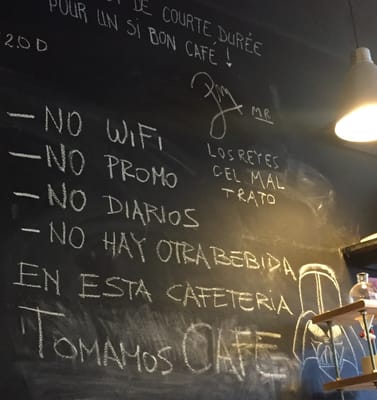 DE COURTE DURÉE
POUR UN SI BON CAFÉ!
2.0 D
MR
LOS REYES
DEL MAL
TRATO
- NO WIFI
- NO PROMO
- NO DIARIOS
- NO HAY OTRA BEBIDA
EN ESTA CAFETERÍA
TOMAMOS CAFÉ